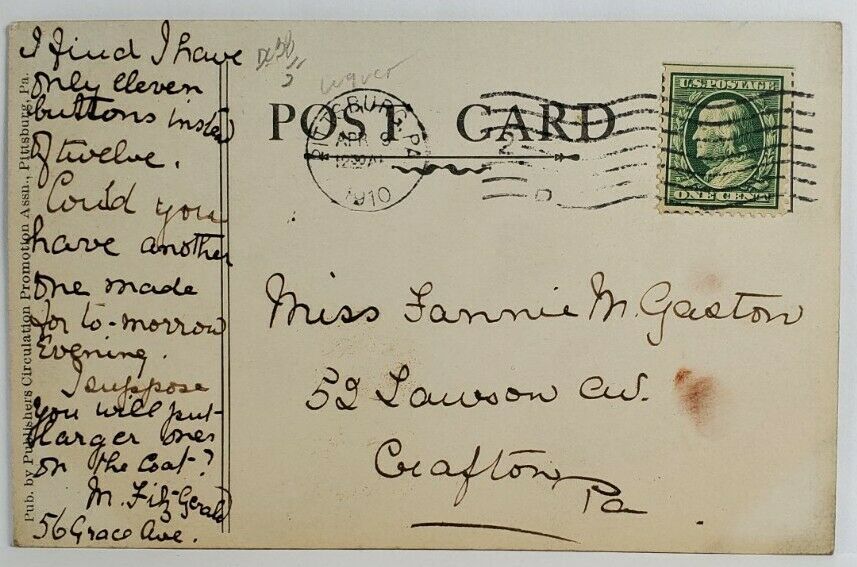 I find I have
only eleven
buttons insted
of twelve.
Could you
have another
one made
for to-morrow
Evening.
I suppose
you will put
larger ones
on the Coat?
M. FitzGerald
56 Grace Ave.
Pub. by Publishers Circulation Promotion Assn., Pittsburg, Pa.
POST CARD
PITTSBURG, PA
APR 9
12 30 AM
1910
2
U.S. POSTAGE
ONE CENT
Miss Fannie M. Gaston
52 Lawson av.
Crafton
Pa